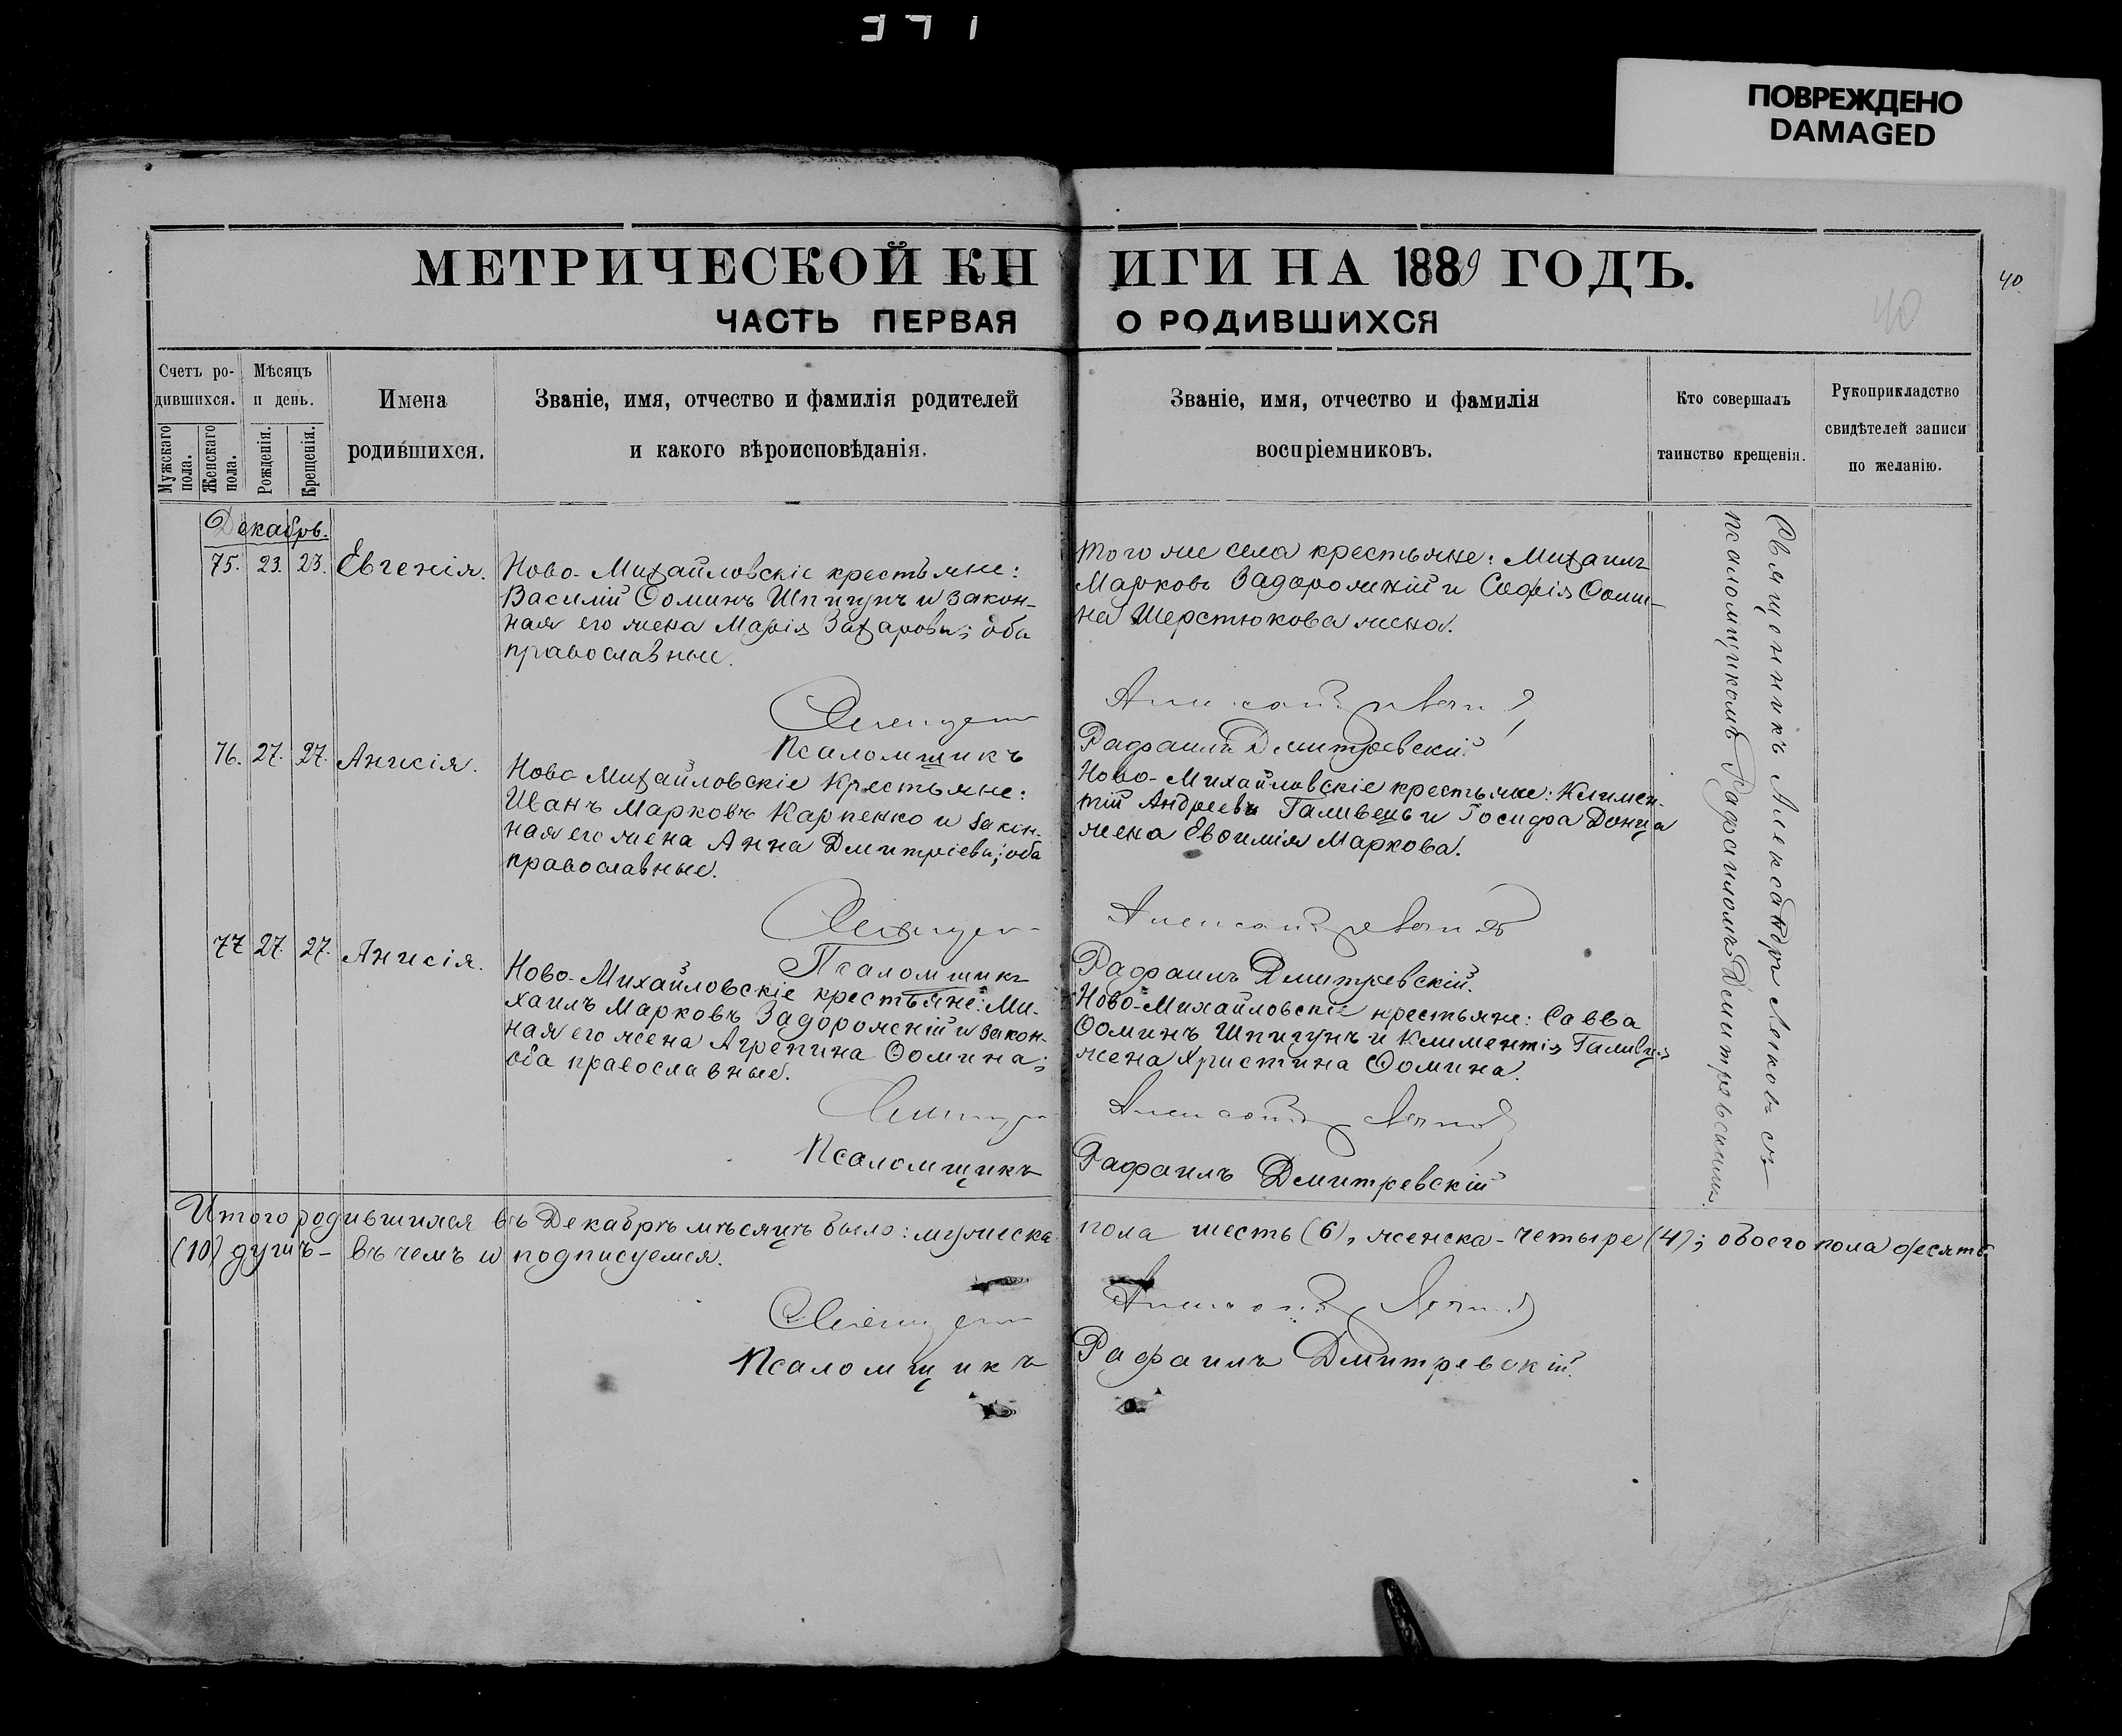 ПОВРЕЖДЕНО
DAMAGED
МЕТРИЧЕСКОЙ КНИГИ НА 1889 ГОДЪ.
ЧАСТЬ ПЕРВАЯ О РОДИВШИХСЯ
40
40
Счетъ ро-
дившихся.
Мужскаго пола.
Женскаго пола.
Мѣсяцъ
и день.
Рожденія.
Крещенія.
Имена
родившихся.
Званіе, имя, отчество и фамилія родителей
и какого вѣроисповѣданія.
Званіе, имя, отчество и фамилія
воспріемниковъ.
Кто совершалъ
таинство крещенія.
Рукоприкладство
свидѣтелей записи
по желанію.
Декабрь.
75. 23. 23. Евгенія.
Ново-Михайловскіе крестьяне:
Василій Ѳоминъ Шпигунъ и закон-
ная его жена Марія Захарова; оба
православные.
того же села крестьяне: Михаилъ
Марковъ Задорожній и Софія Ѳоми-
на Шерстюкова жена.
Священникъ
Псаломщикъ
Рафаилъ Дмитревскій
76. 27. 27. Анисія.
Ново Михайловскіе крестьяне:
Иванъ Марковъ Карпенко и закон-
ная его жена Анна Дмитріева; оба
православные.
Ново-Михайловскіе крестьяне: Климен-
тій Андреевъ Галивецъ и Іосифа Донца
жена Евѳимія Маркова.
Священникъ
Псаломщикъ
Рафаилъ Дмитревскій.
77 27. 27. Анисія.
Ново-Михайловскіе крестьяне: Ми-
хаилъ Марковъ Задорожній и закон-
ная его жена Агрепина Ѳомина;
оба православные.
Ново-Михайловскіе крестьяне: Савва
Ѳоминъ Шпигунъ и Климентія
жена Христина Ѳомина.
Псаломщикъ
Рафаилъ Дмитревскій
Священникъ Александръ съ
псаломщикомъ Рафаиломъ Дмитревскимъ.
Итого родившихся въ Декабрѣ мѣсяцѣ было: мужеска пола шесть (6), женска - четыре (4); обоего пола десять
(10) душъ - въ чемъ и подписуемся.
Священникъ
Псаломщикъ
Рафаилъ Дмитревскій.